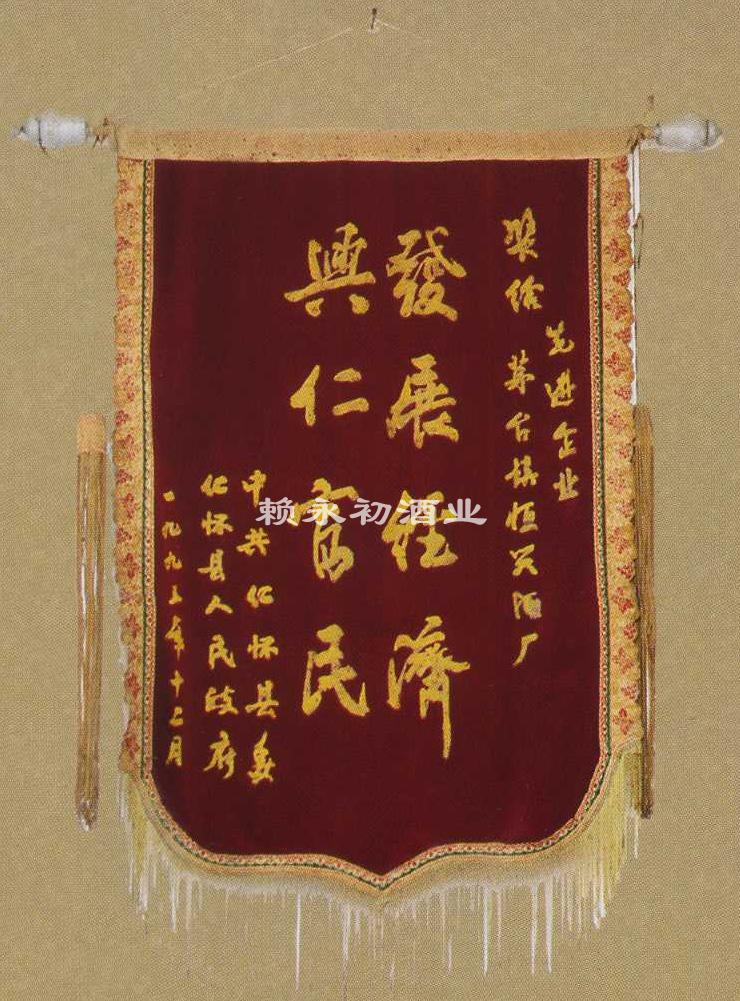 奖给
先进企业
茅台镇恒兴酒厂
發展經濟
興仁富民
中共仁怀县委
仁怀县人民政府
一九九年十二月
赖永初酒业